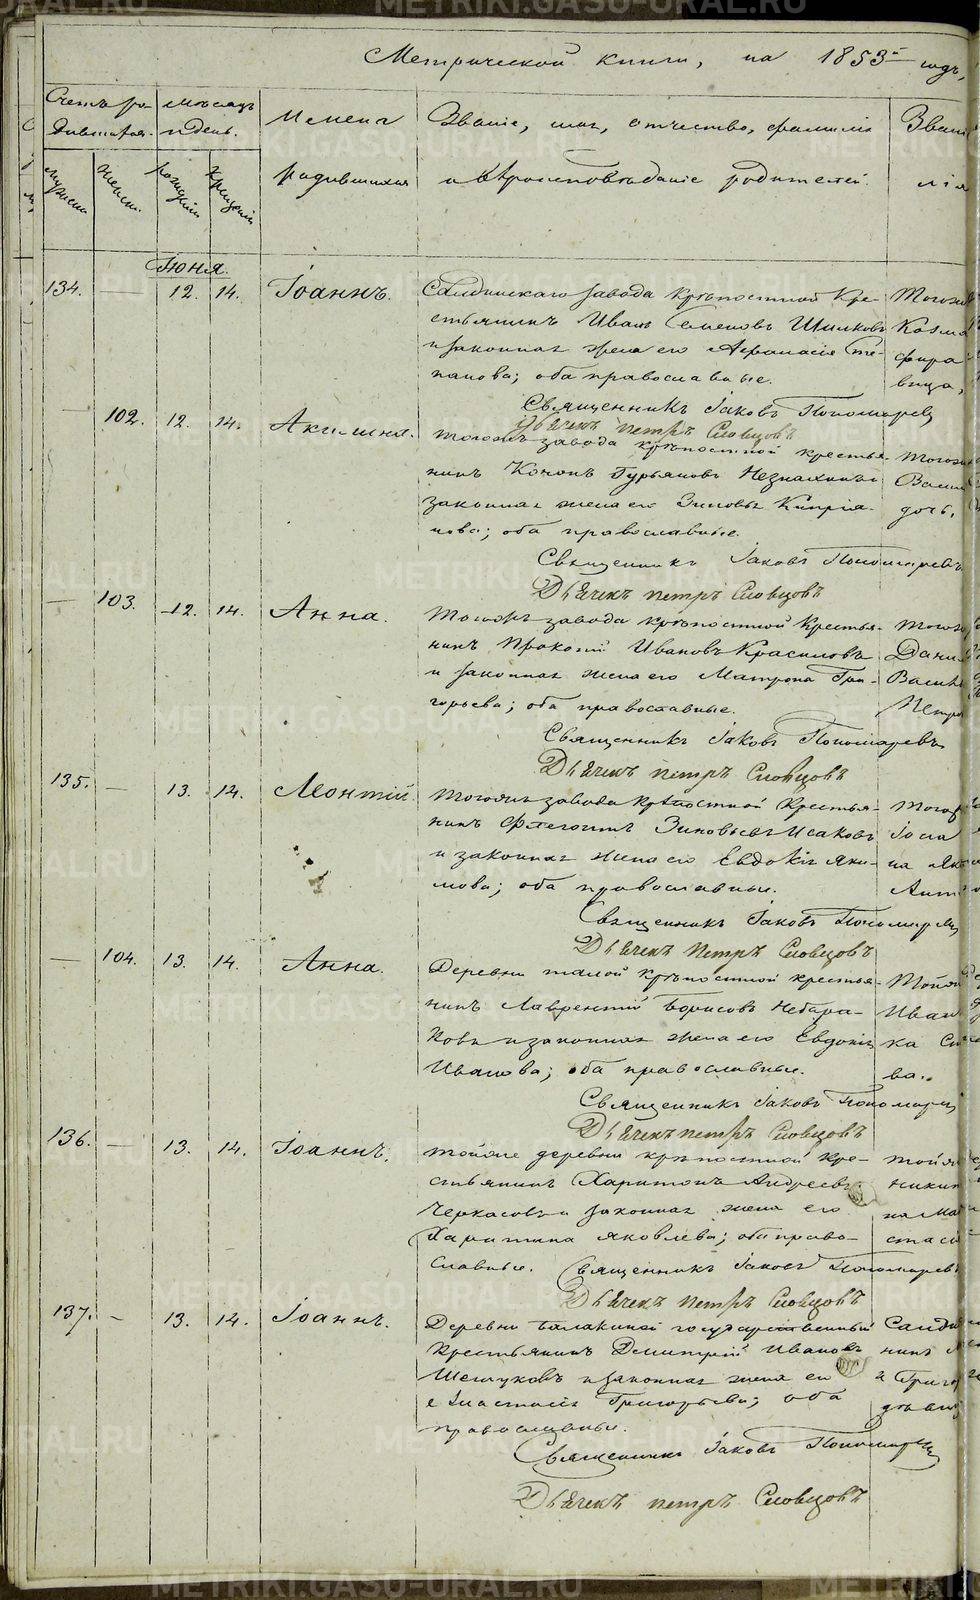 Метрической книги, на 1853й годъ,
Счетъ ро-
дившихся.
Мѣсяцъ
и день.
Имена
родившихся
Званіе, имя, отчество, фамилія
и вѣроисповѣданіе родителей.
Зван
лія
мужеска
женск.
рожденія
крещенія
Іюня.
134. — 12. 14. Іоаннъ. Салдинскаго завода крѣпостной кре-
стьянинъ Иванъ Семеновъ Шилковъ
и законная жена его Афанасія Сте-
панова; оба православные.
Священникъ Іаковъ Пономарев
Дьячекъ Петръ Словцовъ
Козма
вица,
— 102. 12. 14. Акилина. Тогожъ завода крѣпостной крестья-
нинъ Кононъ Гурьяновъ Незнахинъ
законная жена его Зиновья Кипрія-
нова; оба православные.
Священникъ Іаковъ Пономаревъ
Дьячекъ Петръ Словцовъ
Васил
дочь,
— 103. 12. 14. Анна. Тогожъ завода крѣпостной крестья-
нинъ Прокопій Ивановъ Красиловъ
и законная жена его Матрона Гри-
горьева; оба православные.
Священникъ Іаковъ Пономаревъ
Дьячекъ Петръ Словцовъ
Дани
Василь
Петро
135. — 13. 14. Леонтій Тогожъ завода крѣпостной крестья-
нинъ Флегонтъ Зиновьевъ Исаковъ
и законная жена его Евдокія Яки-
мова; оба православные.
Священникъ Іаковъ Пономарев
Дьячекъ Петръ Словцовъ
на Як
— 104. 13. 14. Анна. Деревни Талой крѣпостной крестья-
нинъ Лаврентій Борисовъ Небара-
ковъ и законная жена его Евдокія
Иванова; оба православные.
Священникъ Іаковъ Пономарев
Дьячекъ Петръ Словцовъ
Иван
ва.
136. — 13. 14. Іоаннъ. Тойже деревни крѣпостной кре-
стьянинъ Харитонъ Андреевъ
Черкасовъ и законная жена его
Харитина Яковлева; оба право-
славные. Священникъ Іаковъ Пономаревъ
Дьячекъ Петръ Словцовъ
Никит
137. — 13. 14. Іоаннъ. Деревни Балакиной государственный
крестьянинъ Димитрій Ивановъ
и законная жена его
Анастасія Григорьева; оба
православные.
Священникъ Іаковъ Пономарев
Дьячекъ Петръ Словцовъ
Салди
нинъ
Григо
METRIKI.GASO-URAL.RU